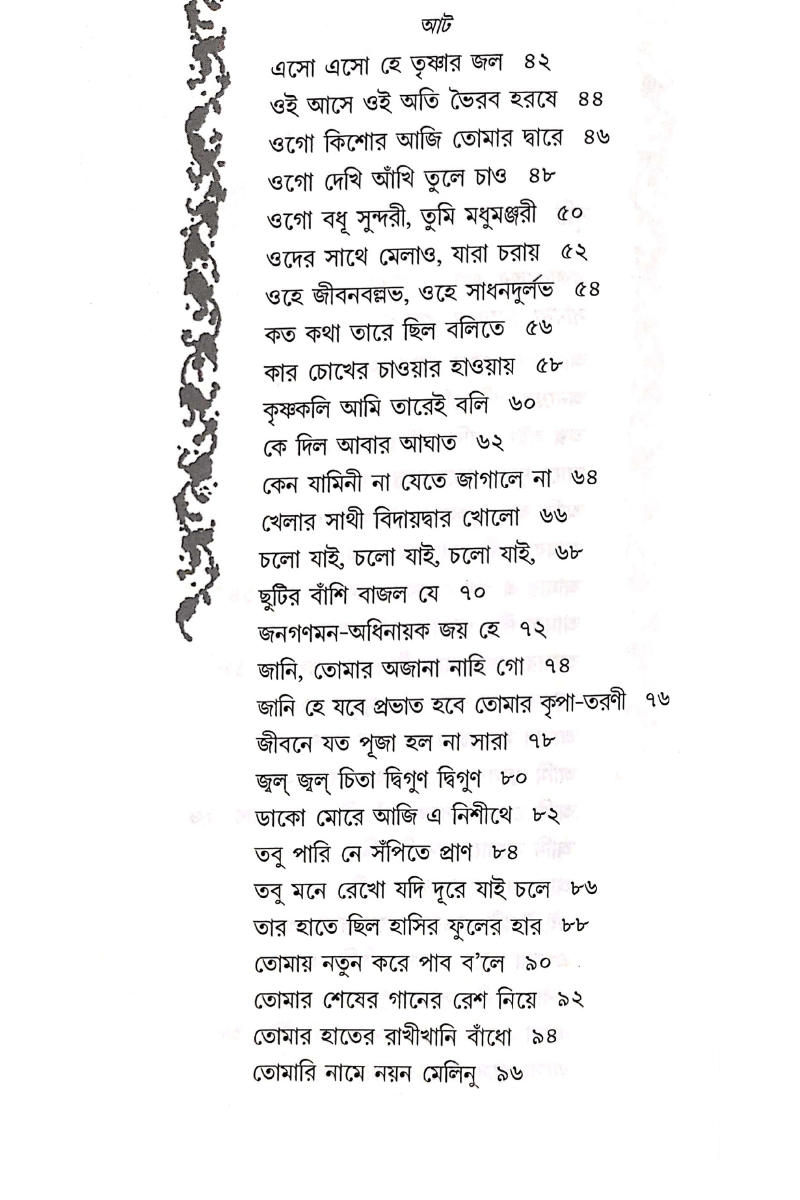 আট
এসো এসো হে তৃষ্ণার জল ৪২
ওই আসে ওই অতি ভৈরব হরষে ৪৪
ওগো কিশোর আজি তোমার দ্বারে ৪৬
ওগো দেখি আঁখি তুলে চাও ৪৮
ওগো বধূ সুন্দরী, তুমি মধুমঞ্জরী ৫০
ওদের সাথে মেলাও, যারা চরায় ৫২
ওহে জীবনবল্লভ, ওহে সাধনদুর্লভ ৫৪
কত কথা তারে ছিল বলিতে ৫৬
কার চোখের চাওয়ার হাওয়ায় ৫৮
কৃষ্ণকলি আমি তারেই বলি ৬০
কে দিল আবার আঘাত ৬২
কেন যামিনী না যেতে জাগালে না ৬৪
খেলার সাথী বিদায়দ্বার খোলো ৬৬
চলো যাই, চলো যাই, চলো যাই, ৬৮
ছুটির বাঁশি বাজল যে ৭০
জনগণমন-অধিনায়ক জয় হে ৭২
জানি, তোমার অজানা নাহি গো ৭৪
জানি হে যবে প্রভাত হবে তোমার কৃপা-তরণী ৭৬
জীবনে যত পূজা হল না সারা ৭৮
জ্বল্ জ্বল্ চিতা দ্বিগুণ দ্বিগুণ ৮০
ডাকো মোরে আজি এ নিশীথে ৮২
তবু পারি নে সঁপিতে প্রাণ ৮৪
তবু মনে রেখো যদি দূরে যাই চলে ৮৬
তার হাতে ছিল হাসির ফুলের হার ৮৮
তোমায় নতুন করে পাব ব'লে ৯০
তোমার শেষের গানের রেশ নিয়ে ৯২
তোমার হাতের রাখীখানি বাঁধো ৯৪
তোমারি নামে নয়ন মেলিনু ৯৬